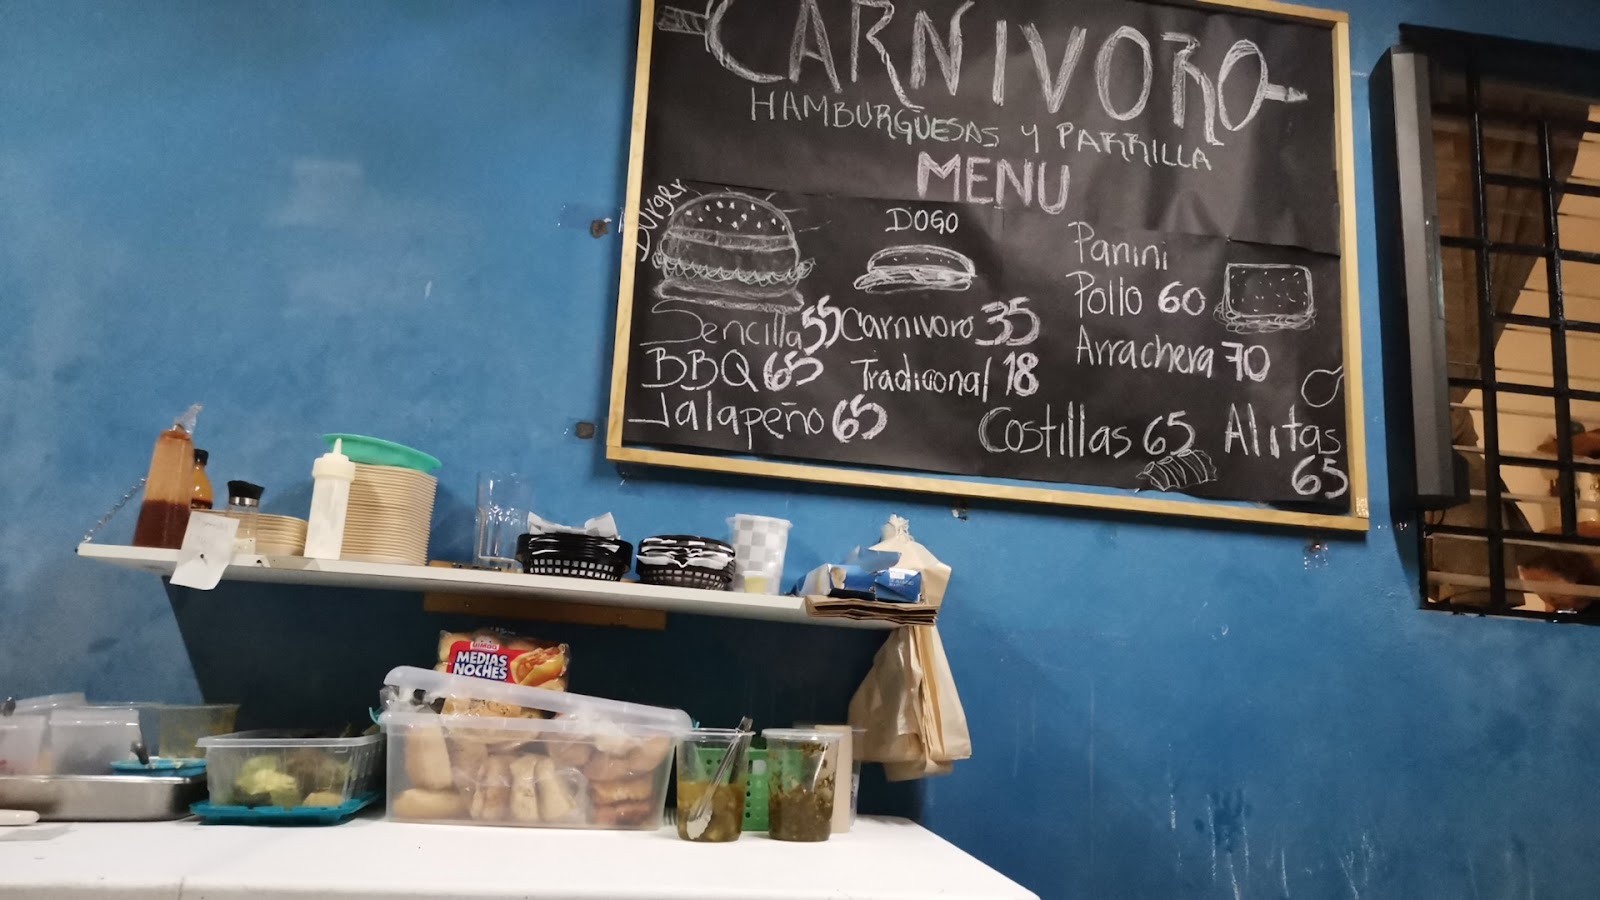 CARNIVORO
HAMBURGUESAS Y PARRILLA
MENU
Burger
Sencilla 55
BBQ 65
Jalapeño 65
DOGO
Carnivoro 35
Tradicional 18
Panini
Pollo 60
Arrachera 70
Costillas 65
Alitas
65
BIMBO
MEDIAS
NOCHES